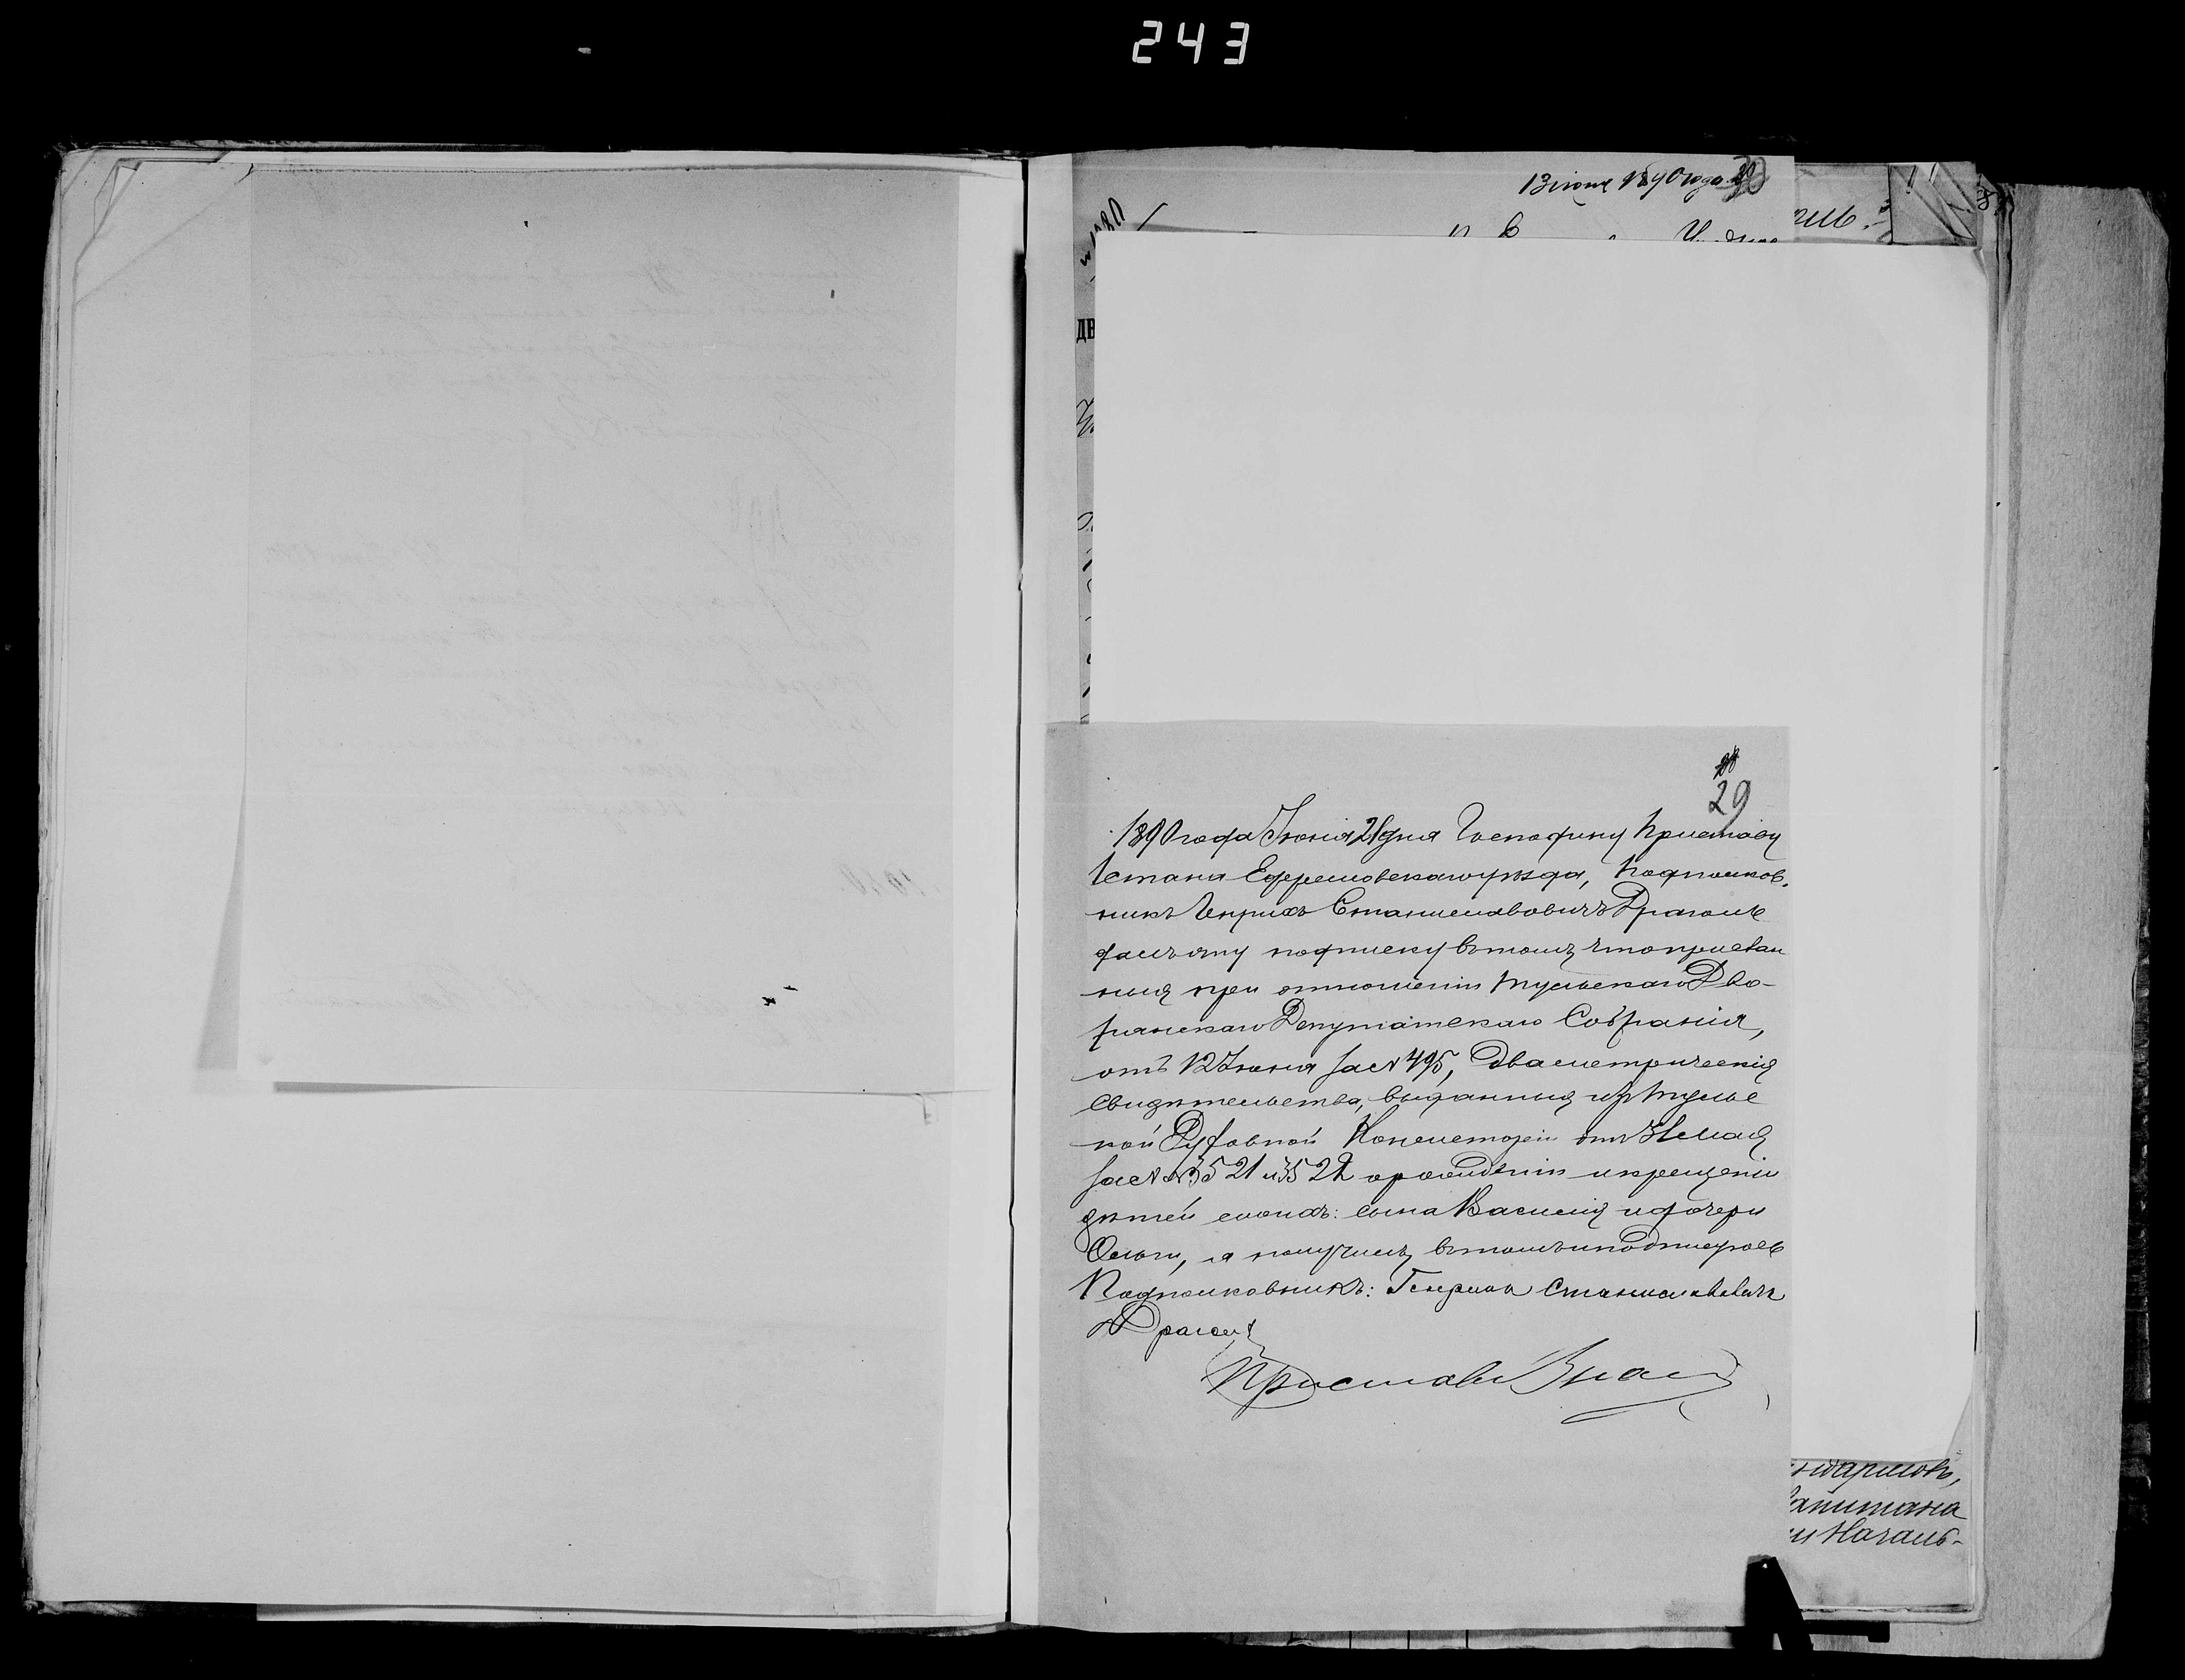 243
13 июня 1890 года 30
ДВ
29
1890 года Июня 21 дня Господину Приставу
1 стана Ефремовскаго уезда, Подполков-
никъ Генрихъ Станиславовичъ Драгомъ
далъ эту подписку въ томъ что прислан
ныя при отношеніи Тульскаго Дво-
рянскаго Депутатскаго Собранія,
отъ 12 Июня за № 495, два метрическія
свидѣтельства, выданныя изъ Тульс
кой Духовной Консисторіи отъ Мая
за №№ 3521 и 3522 о рожденіи и крещеніи
дѣтей моихъ: сына Василія и дочери
Ольги, я получилъ въ томъ и подписуюсь
Подполковникъ: Генрихъ Станиславовичъ
Драгомъ
Приставъ
ндармовъ,
Капитана
и Началь-